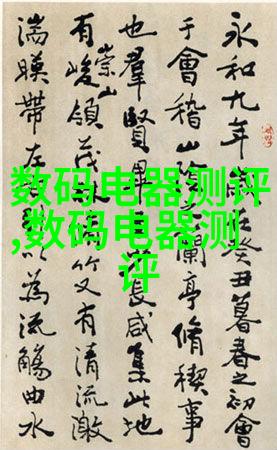 永和九年在癸丑暮春之初會
于會稽山陰之蘭亭脩稧事
也羣賢畢長咸集此地
有崇山峻領茂竹又有清流激
湍暎帶左以為流觴曲水
数码电器测评
,数码电器测
评